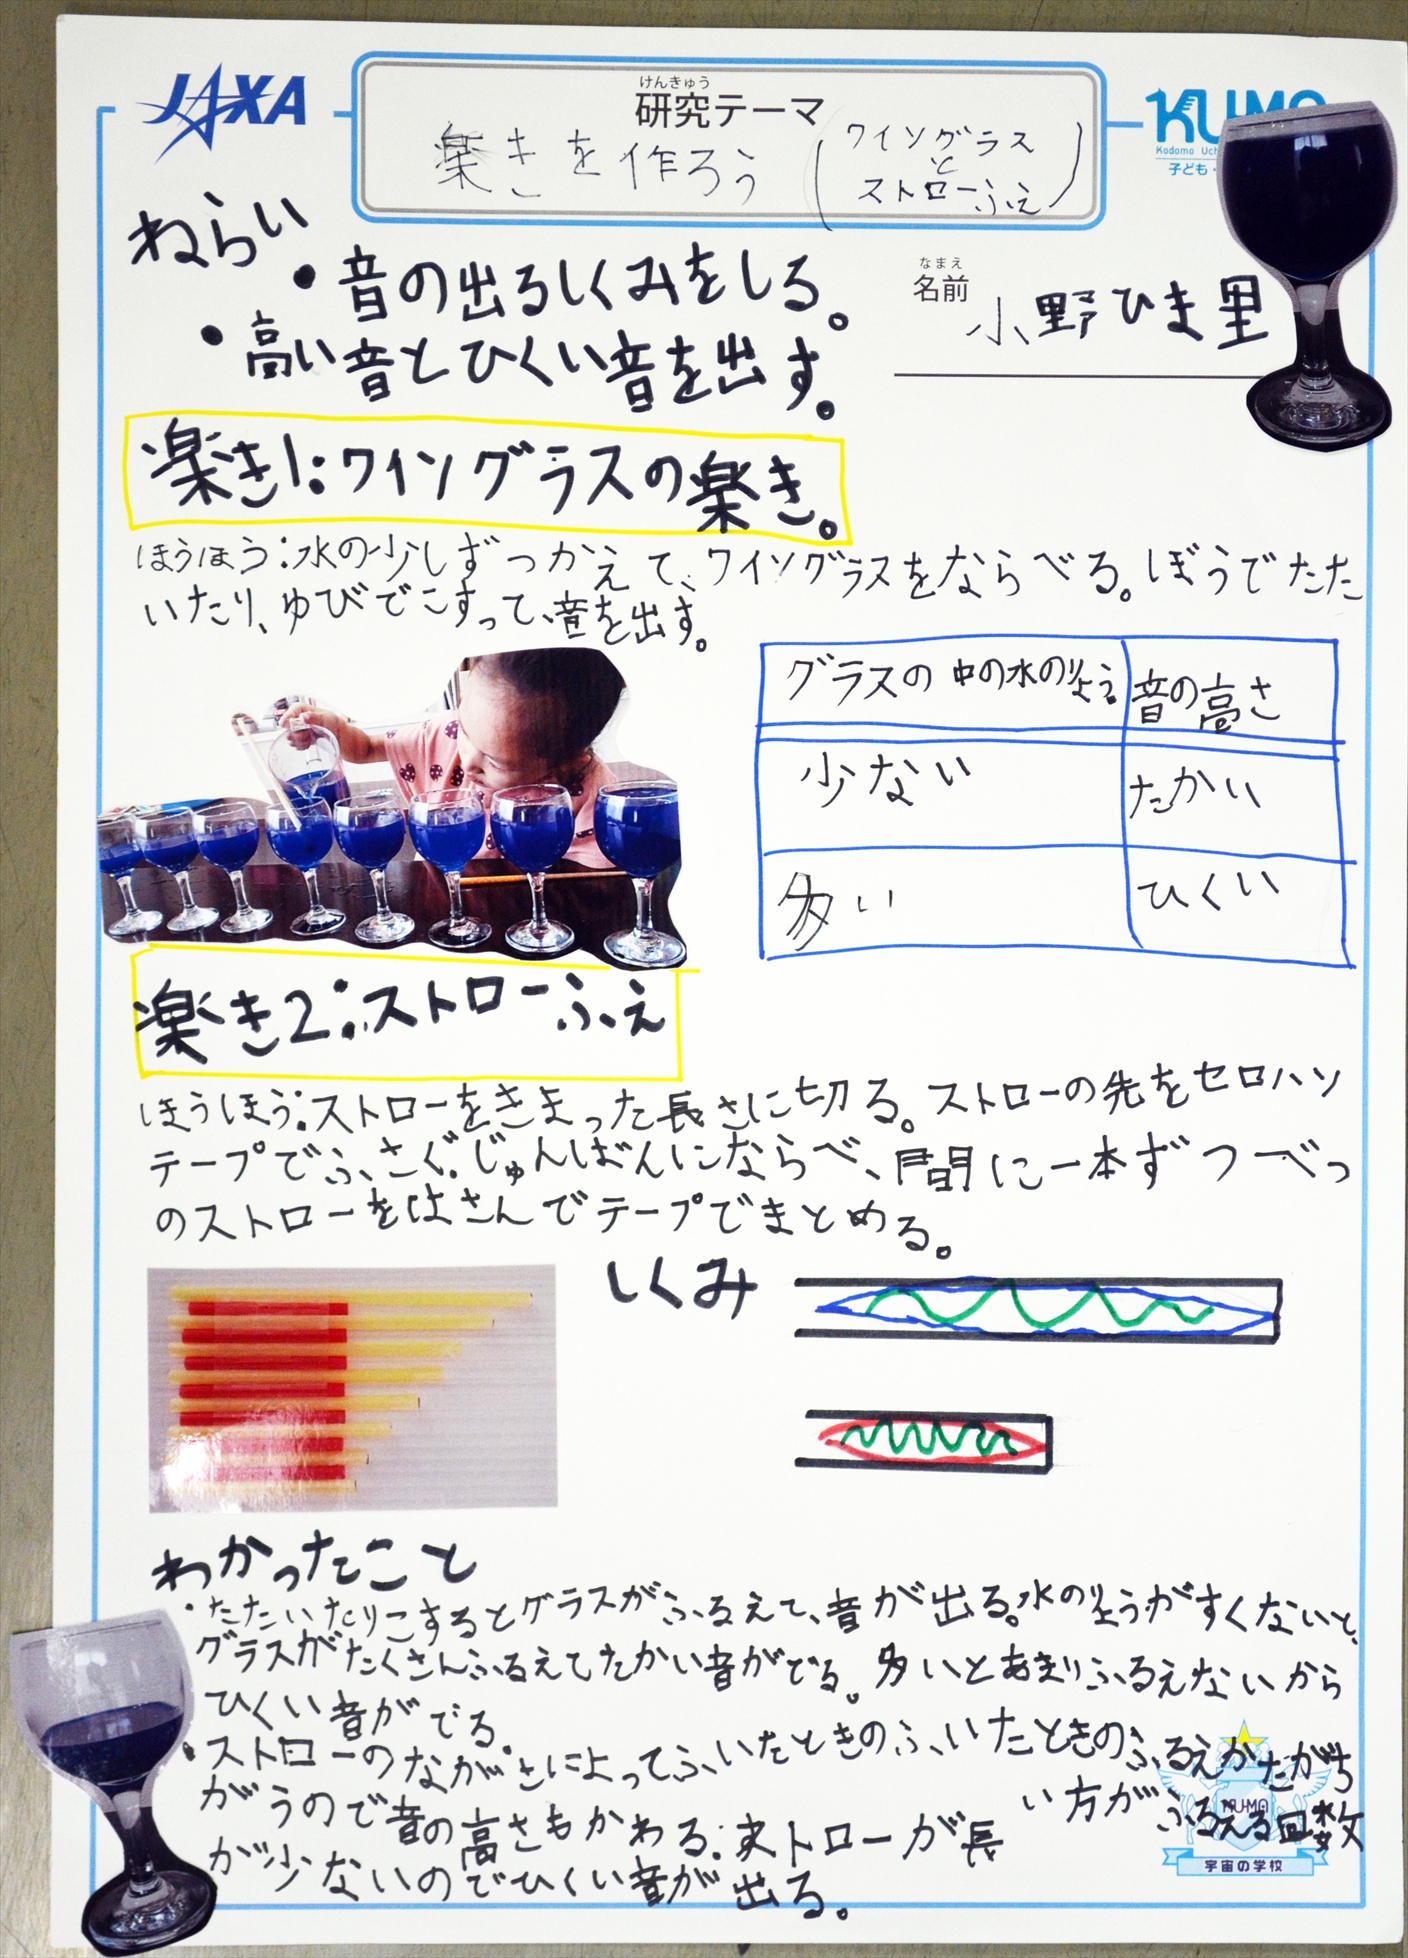 JAXA
けんきゅう
研究テーマ
楽きを作ろう（ワイングラスとストローふえ）
KUMA
Kodomo Uch
子ども・
ねらい
・音の出るしくみをしる。
・高い音とひくい音を出す。
なまえ
名前 小野ひま里
楽き1:ワイングラスの楽き。
ほうほう:水の少しずつかえて、ワイングラスをならべる。ぼうでたた
いたり、ゆびでこすって、音を出す。
グラスの中の水のりょう。 音の高さ
少ない たかい
多い ひくい
楽き2:ストローふえ
ほうほう:ストローをきまった長さに切る。ストローの先をセロハン
テープでふさぐ。じゅんばんにならべ、間に一本ずつべつ
のストローをはさんでテープでまとめる。
しくみ
わかったこと
・たたいたりこするとグラスがふるえて、音が出る。水のりょうがすくないと、
グラスがたくさんふるえてたかい音がでる。多いとあまりふるえないから
ひくい音がでる。
・ストローのながさによってふいたときのふいたときのふるえかたがち
がうので音の高さもかわる。ストローが長い方がふるえる回数
が少ないのでひくい音が出る。
KU-MA
宇宙の学校